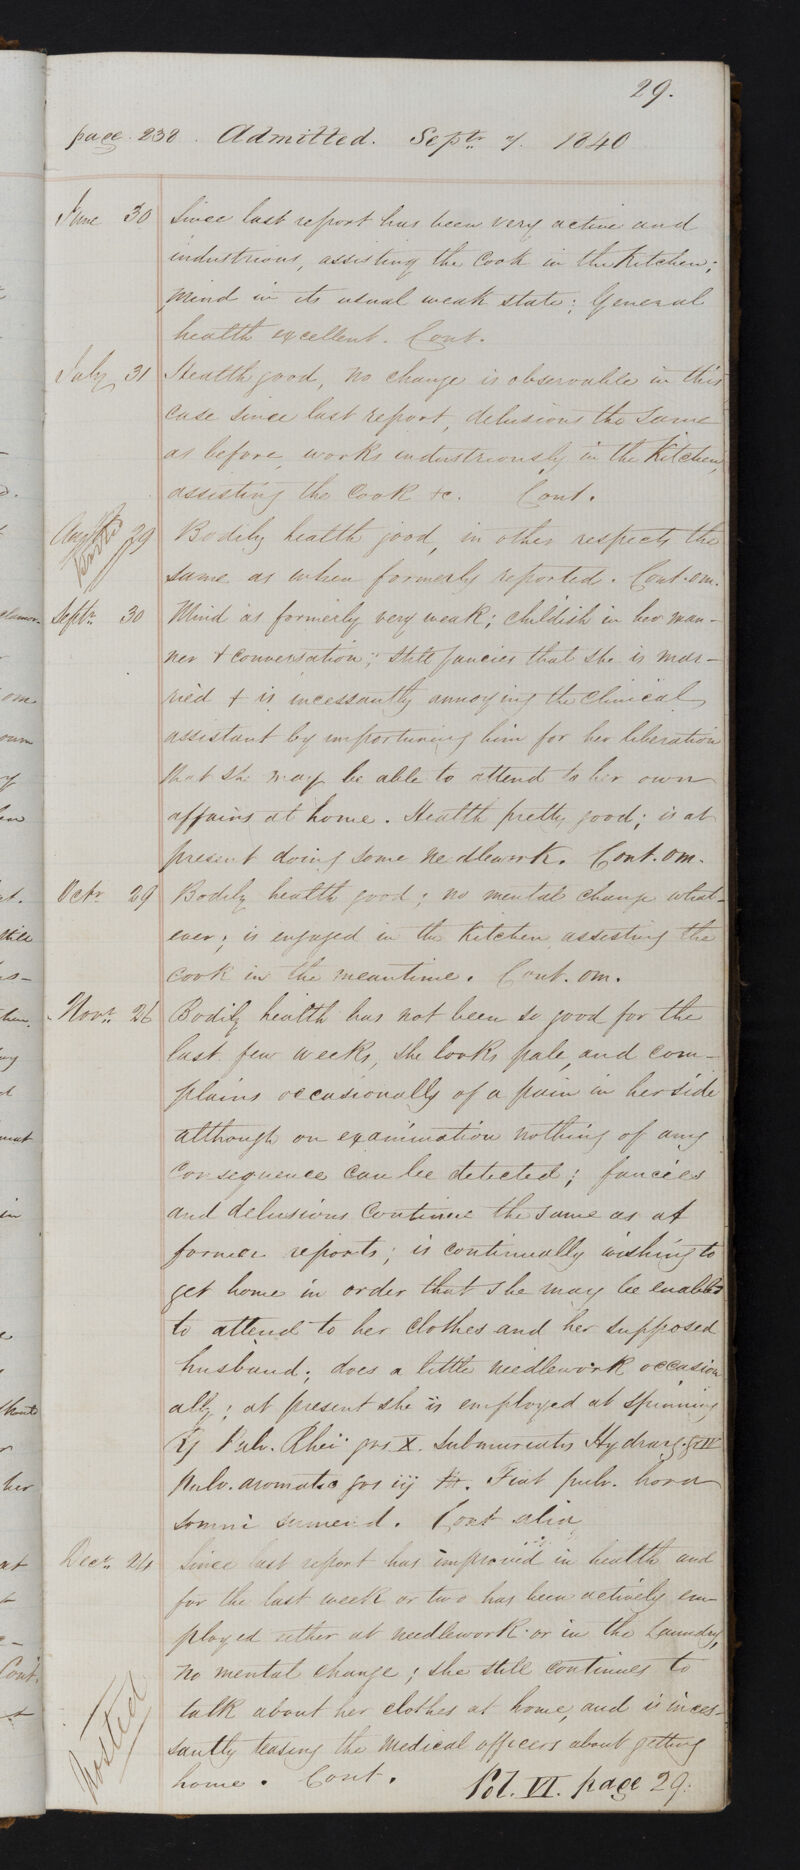 29.
page 238. Admitted. Septr. 7. 1840
June 30 Since last report has been very active and
industrious, assisting the Cook in the Kitchen;
mind in its usual weak state; General
health excellent. Cont.
July 31 Health good, no change is observable in this
case since last report, delusions the same
as before, works industriously in the Kitchen,
assisting the Cook &c. Cont.
Augt. 29 Bodily health good, in other respects the
Posted
same as when formerly reported. Cont. om.
Septr. 30 Mind as formerly very weak; childish in her man-
ner & conversation; still fancies that she is mar-
ried & is incessantly annoying the Clinical
assistant by importuning him for her liberation
that she may be able to attend to her own
affairs at home. Health pretty good; is at
present doing some needlework. Cont. om.
Octr. 29 Bodily health good; no mental change what-
ever; is engaged in the Kitchen assisting the
cook in the meantime. Cont. om.
Novr. 26 Bodily health has not been so good for the
last few weeks, she looks pale, and com-
plains occasionally of a pain in her side
although on examination nothing of any
consequence can be detected; fancies
and delusions continue the same as at
former reports; is continually wishing to
get home in order that she may be enabled
to attend to her clothes and her supposed
husband; does a little needlework occasion
ally; at present she is employed at spinning
℞ Pulv. Rhei grs X. Submuriatis Hydrarg. gr IV
Pulv. aromatic grs iij. Fiat pulv. hora
somni sumend. Cont alia
Decr. 24 Since last report has improved in health and
for the last week or two has been actively em-
ployed either at needlework or in the Laundry,
no mental change; she still continues to
talk about her clothes at home, and is inces-
santly teasing the medical officers about getting
home. Cont. Vol. VI. page 29.
Posted